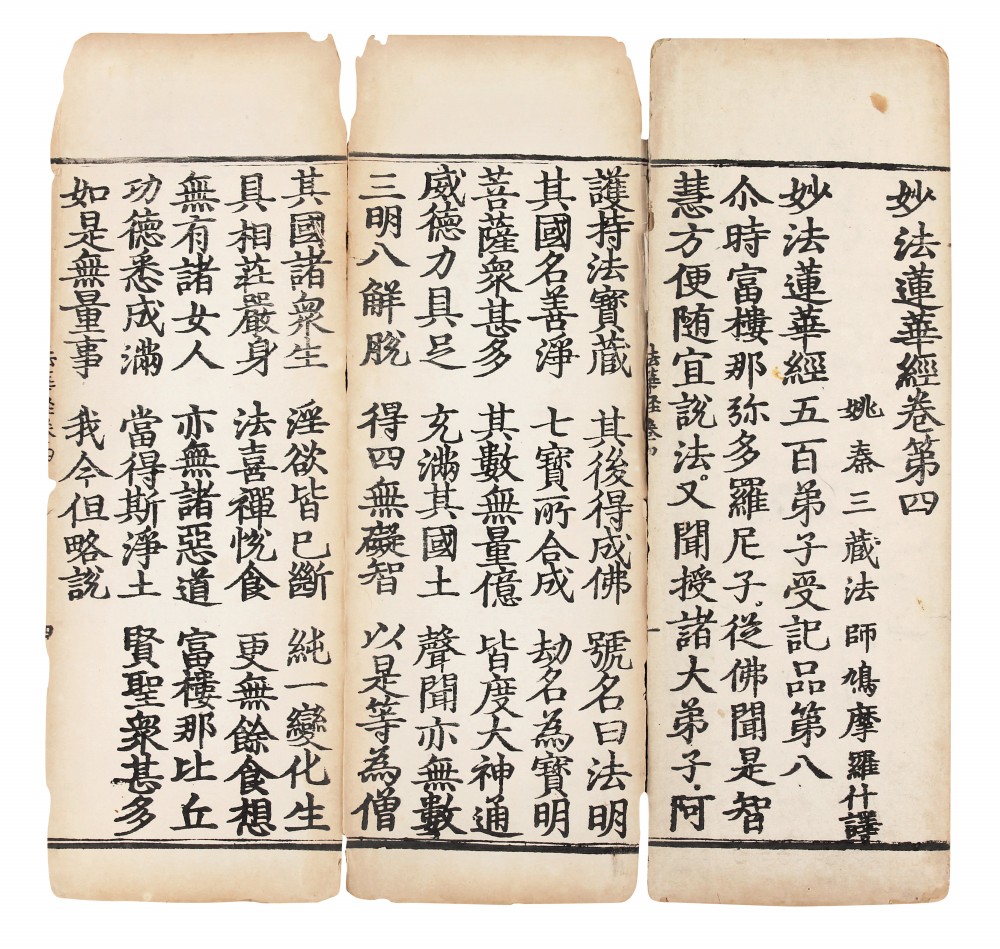 妙法蓮華經卷第四
姚秦三藏法師鳩摩羅什譯
妙法蓮華經五百弟子受記品第八
尒時富樓那弥多羅尼子。從佛聞是智
慧方便随宜說法。又聞授諸大弟子。阿
法華經卷四
一
護持法寶藏 其後得成佛 號名曰法明
其國名善淨 七寶所合成 劫名為寶明
菩薩衆甚多 其數無量億 皆度大神通
威德力具足 充滿其國土 聲聞亦無數
三明八解脱 得四無礙智 以是等為僧
其國諸衆生 淫欲皆已斷 純一變化生
具相莊嚴身 法喜禪悅食 更無餘食想
無有諸女人 亦無諸惡道 富樓那比丘
功德悉成滿 當得斯淨土 賢聖衆甚多
如是無量事 我今但略說
法華經卷四
四